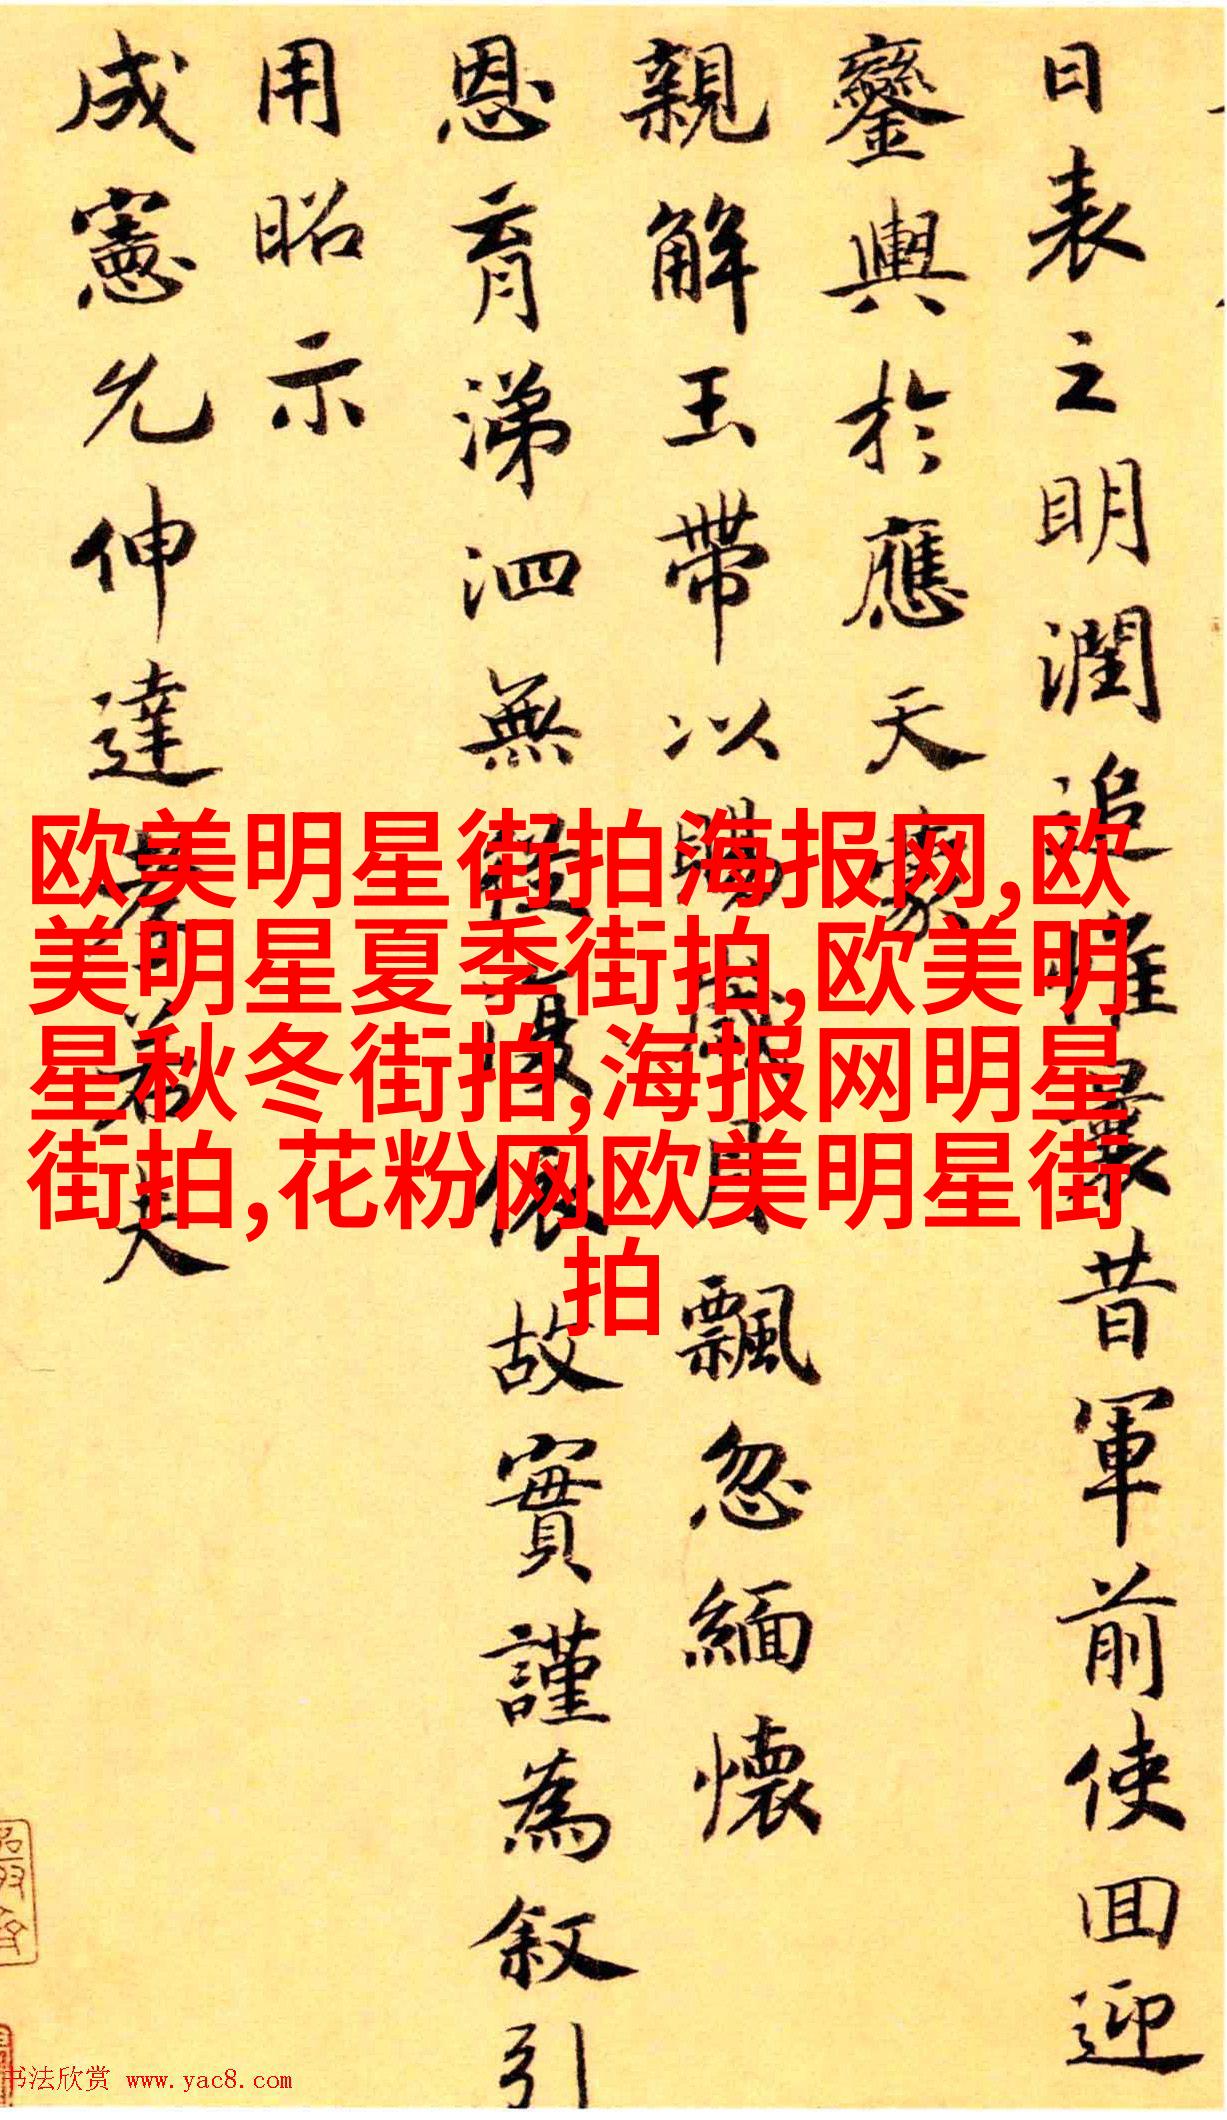 日表之明潤追惟曩昔軍前使回迎
鑾輿於應天蒙
親解玉帶以賜歲月飄忽緬懷
恩育涕泗無從依故實謹為叙引
用昭示
成憲允伸達孝若夫
欧美明星街拍海报网,欧
美明星夏季街拍,欧美明
星秋冬街拍,海报网明星
街拍,花粉网欧美明星街
拍
书法欣赏 www.yac8.com